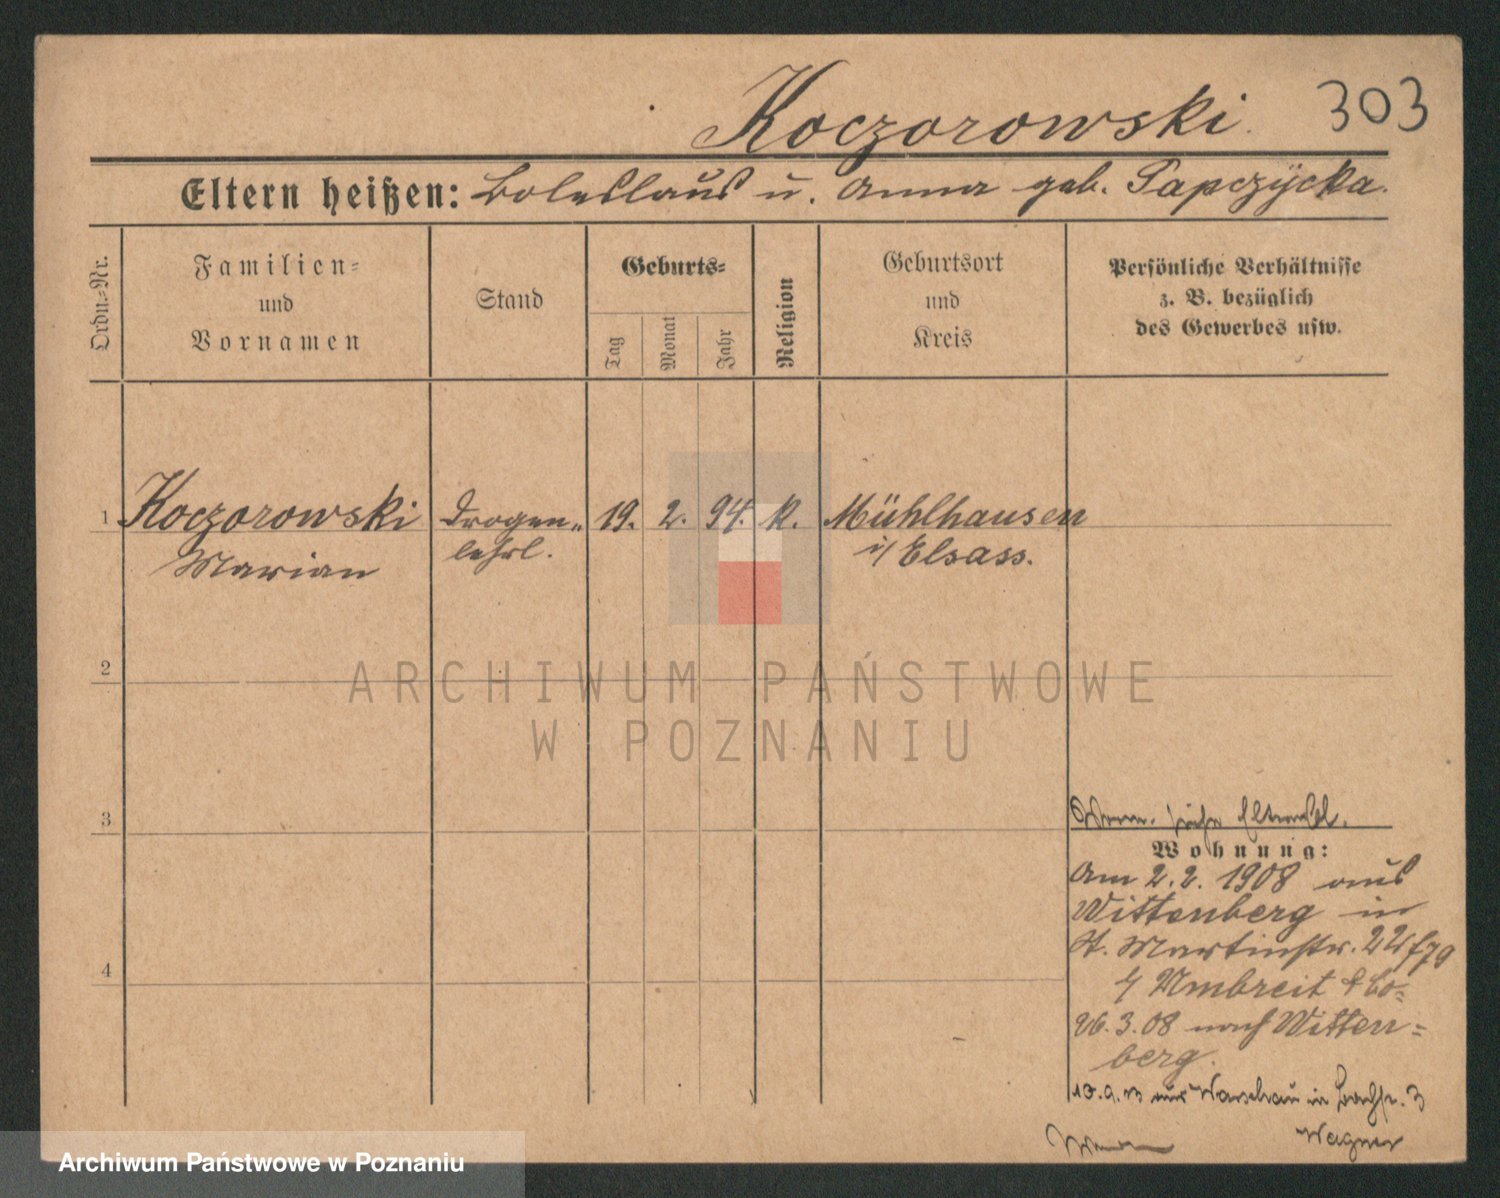 Koczorowski. 303
Eltern heißen: Boleslaus u. Anna geb. Papczycka.
Ordn.-Nr.
Familien-
und
Vornamen
Stand
Geburts-
Tag
Monat
Jahr
Religion
Geburtsort
und
Kreis
Persönliche Verhältnisse
z. B. bezüglich
des Gewerbes usw.
1 Koczorowski Drogen- 19. 2. 94. k. Mühlhausen
Marian lehrl. i/ Elsass.
2
ARCHIWUM PAŃSTWOWE
W POZNANIU
3
siehe
Wohnung:
Am 2.2. 1908 aus
Wittenberg in
St. Martinstr.
b/ Umbreit & Co.
26.3.08 nach Witten-
berg.
4
aus Warschau in 3
Wagner
Archiwum Państwowe w Poznaniu